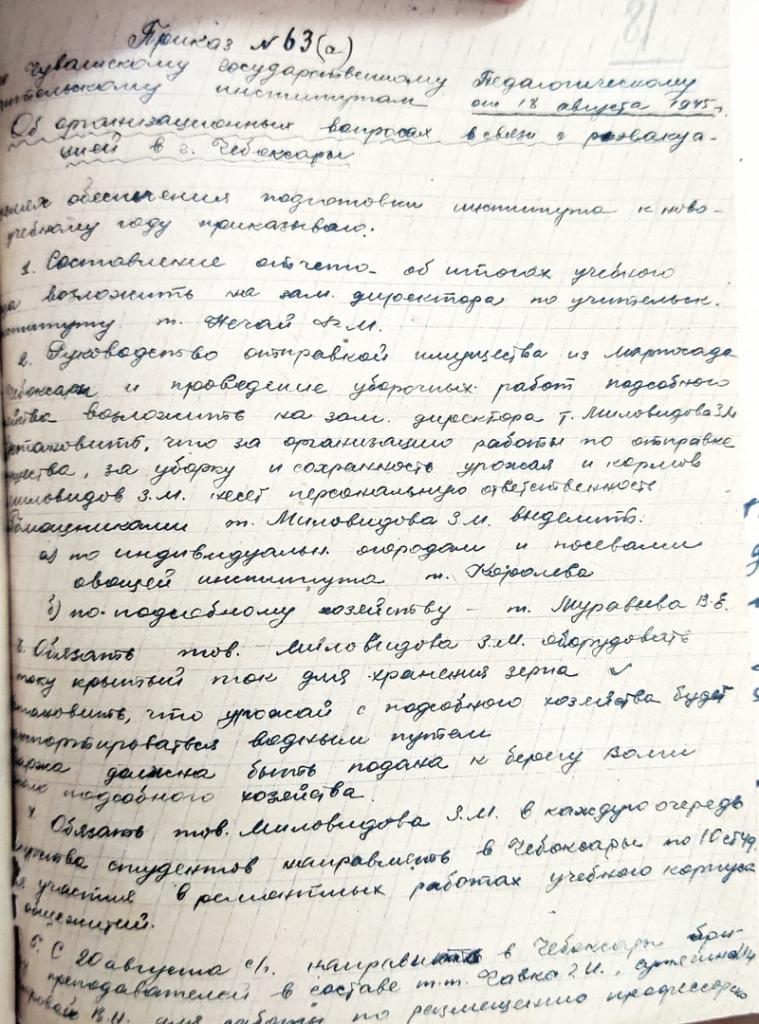 81
Приказ № 63(а)
Чувашскому государственному Педагогическому
учительскому институтам от 18 августа 1945г.
Об организационных вопросах в связи с реэвакуа-
цией в г. Чебоксары
целях обеспечения подготовки института к ново-
учебному году приказываю:
1. Составление отчета об итогах учебного
возложить на зам. директора по учительск.
институту т. Нечай
2. Руководство отправкой имущества из Марпосада
Чебоксары и проведение уборочных работ подсобного
возложить на зам. директора т. Миловидова З.М.
Установить, что за организацию работы по отправке
имущества, за уборку и сохранность урожая и кормов
Миловидов З.М. несет персональную ответственность
Помощниками т. Миловидова З.М. выделить:
а) по индивидуальн. огородам и посевами
овощей института т. Королева
б) по подсобному хозяйству – т. Муравьева В.Е.
Обязать тов. Миловидова З.М. оборудовать
току крытый ток для хранения зерна
установить, что урожай с подсобного хозяйства будет
транспортироваться водным путем
баржа должна быть подана к берегу Волги
подсобного хозяйства.
4. Обязать тов. Миловидова З.М. в каждую очередь
имущества студентов направлять в Чебоксары по 10
участия в ремонтных работах учебного корпуса
общежитий.
5. С 20 августа с/г. направить в Чебоксары бри-
преподавателей в составе т.т. Чавка
В.И. для работы по размещению профессорско